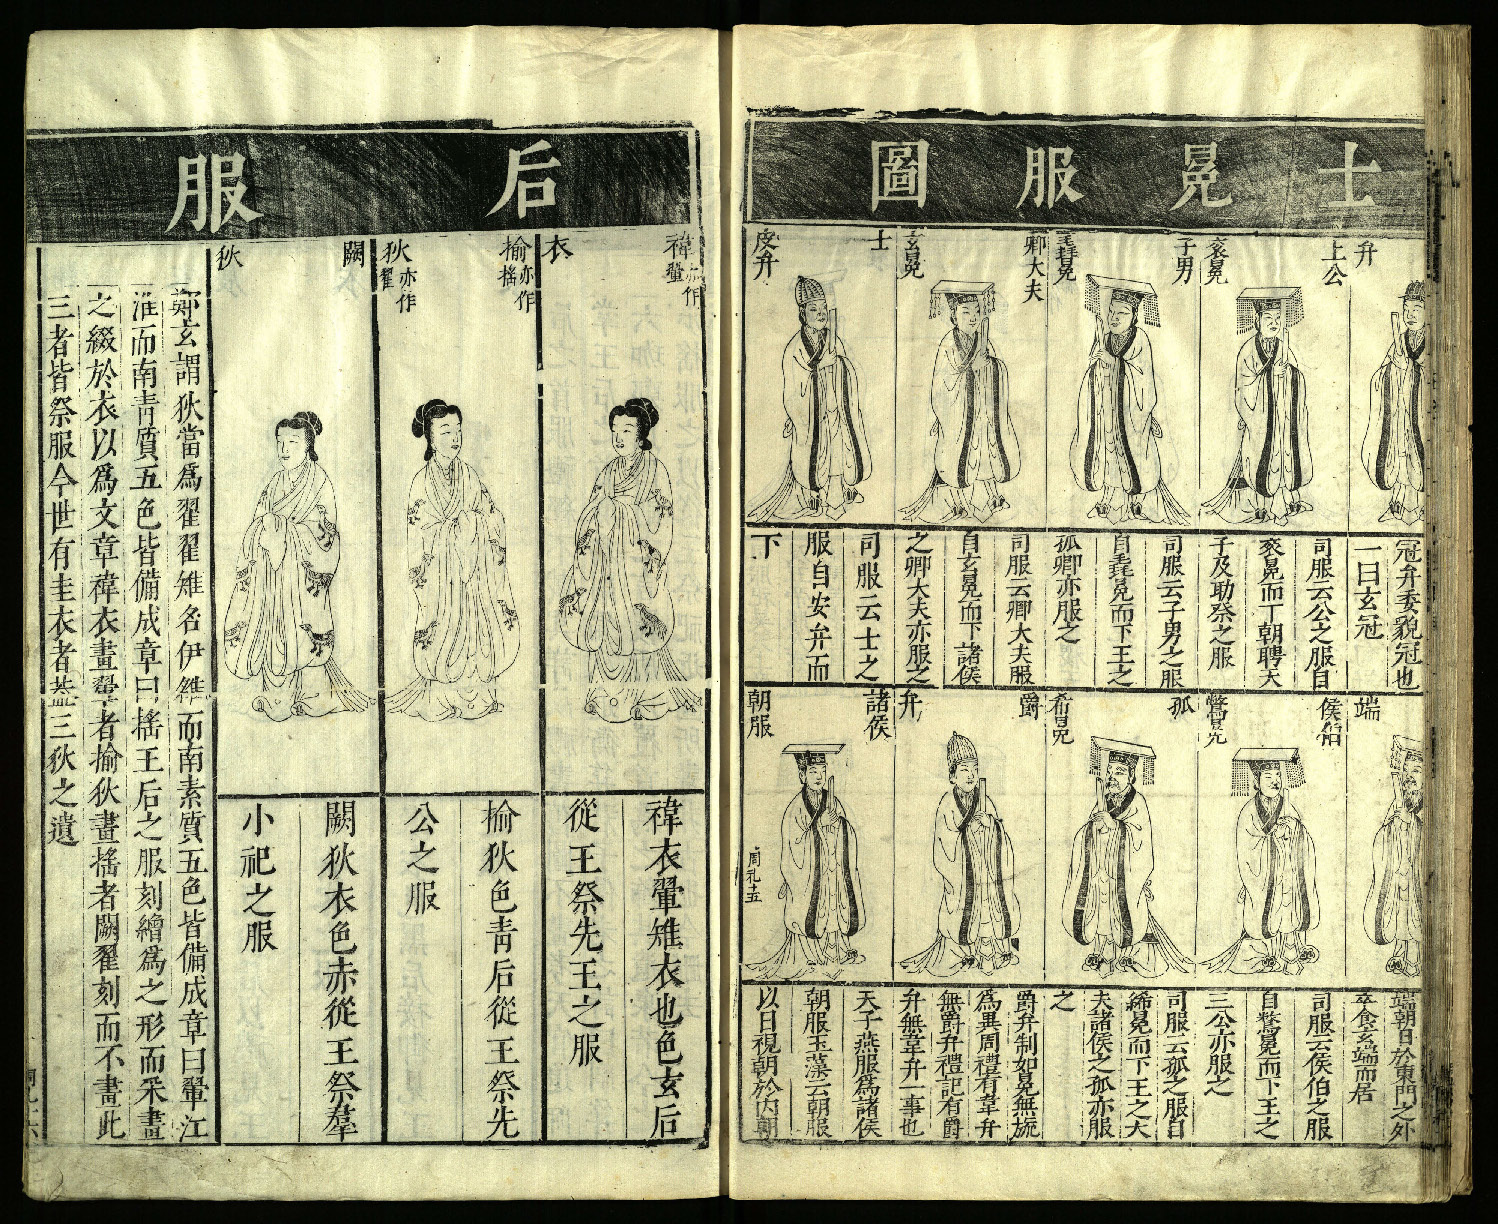 士冕服圖
弁
上公
袞冕
子男
毳冕
卿大夫
玄冕
士
皮弁
冠弁委貌冠也
一曰玄冠
司服云公之服自
袞冕而下朝聘天
子及助祭之服
司服云子男之服
自毳冕而下王之
孤卿亦服之
司服云卿大夫服
自玄冕而下諸侯
之卿大夫亦服之
司服云士之
服自安弁而
下
端
侯伯
鷩冕
孤
希冕
爵
弁
諸侯
朝服
周礼十五
端朝日於東門之外
卒食玄端而居
司服云侯伯之服
自鷩冕而下王之
三公亦服之
司服云孤之服自
絺冕而下王之大
夫諸侯之孤亦服
之
爵弁制如冕無旒
為異周禮有韋弁
無爵弁禮記有爵
弁無韋弁一事也
天子燕服為諸侯
朝服玉藻云朝服
以日視朝於內朝
后服
褘亦作翬
衣
揄亦作搖
狄亦作翟
闕
狄
褘衣翬雉衣也色玄后
從王祭先王之服
揄狄色青后從王祭先
公之服
闕狄衣色赤從王祭羣
小祀之服
鄭玄謂狄當爲翟翟雉名伊雒而南素質五色皆備成章曰翬江
淮而南青質五色皆備成章曰搖王后之服刻繒爲之形而采畫
之綴於衣以爲文章褘衣畫翬者揄狄畫搖者闕翟刻而不畫此
三者皆祭服今世有圭衣者葢三狄之遺